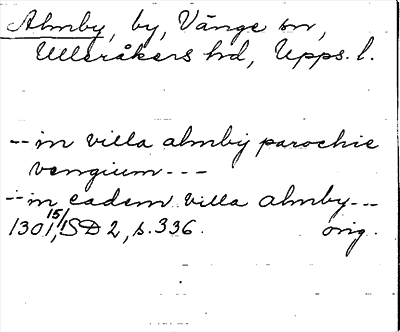 Almby, by, Vänge sn,
Ulleråkers hd, Upps. l.
-- in villa almby parochie
vengium ---
-- in eadem villa almby---
1301 15/1, SD 2, s. 336. orig.